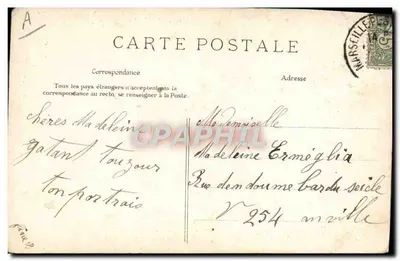 A
CARTE POSTALE
MARSEILLE
Correspondance
Adresse
Tous les pays étrangers n'acceptent pas la
correspondance au recto, se renseigner à la Poste.
chères Madeleine
jatant touzour
ton portrais
Mademoiselle
Madeleine Erméglia
Rue dendoume bardu siecle
N° 254 anville
CPAPHIL